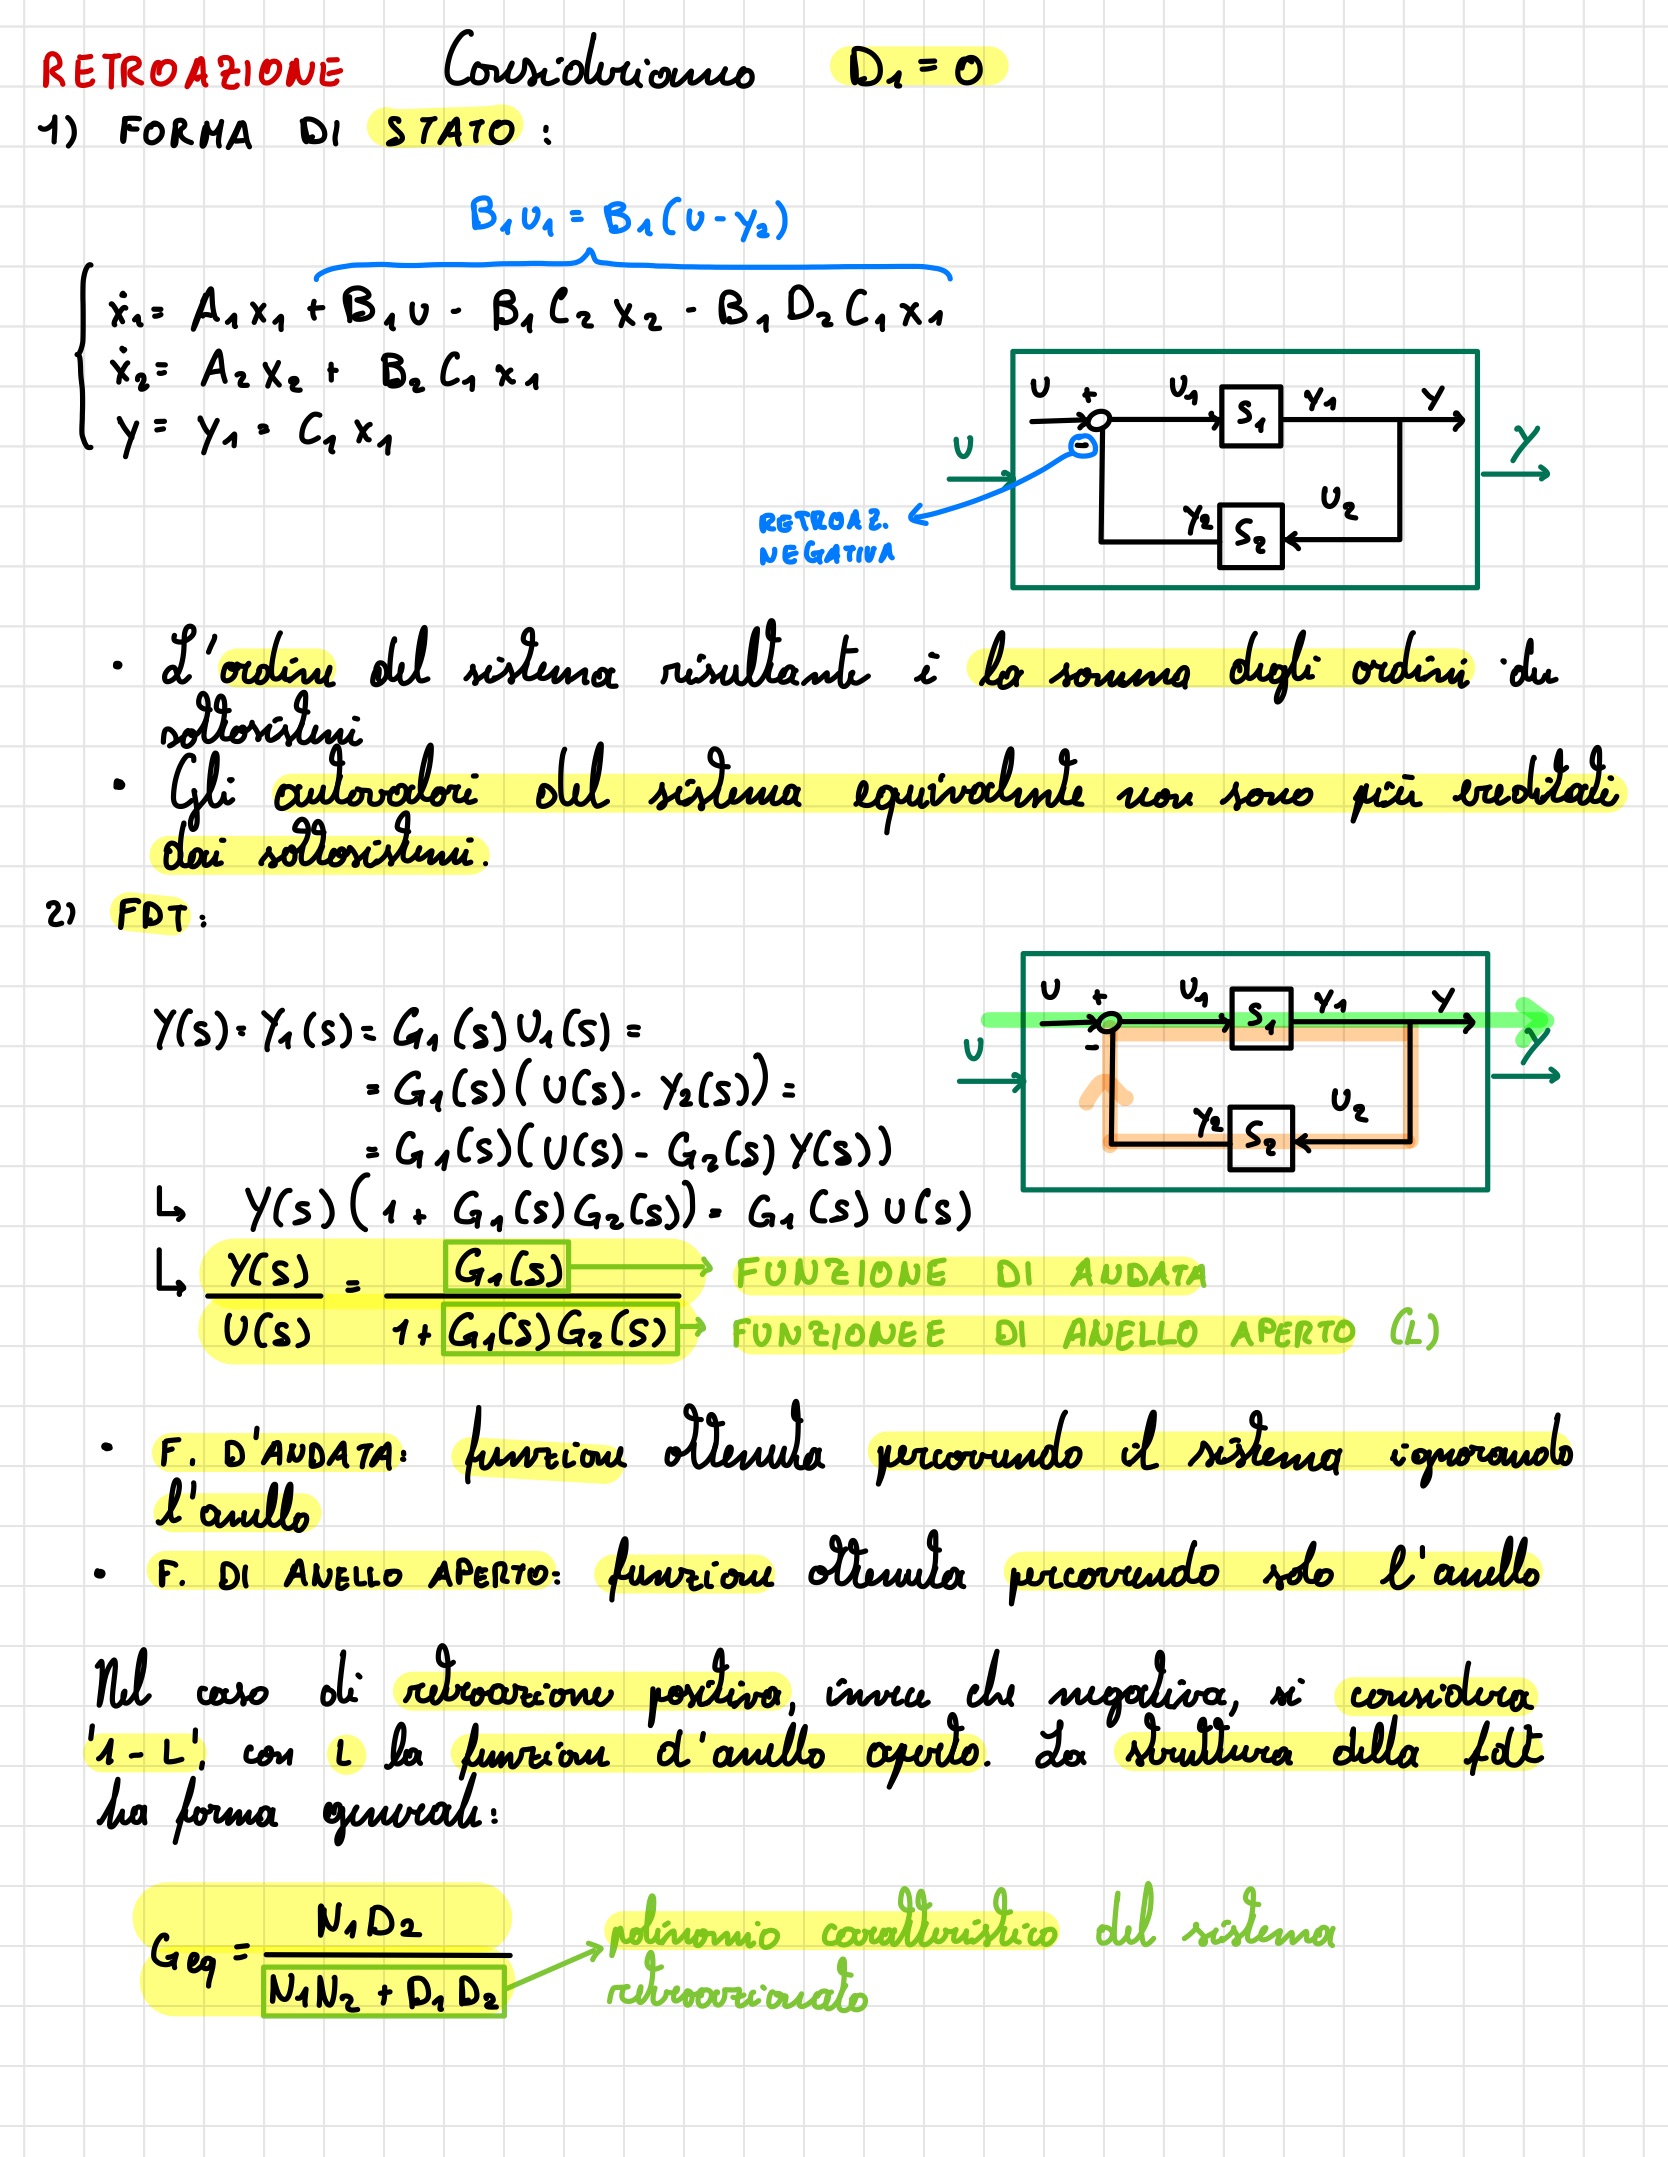 RETROAZIONE Consideriamo D₁ = 0
1) FORMA DI STATO :
B₁u₁ = B₁(u - y₂)
ẋ₁ = A₁x₁ + B₁u - B₁C₂x₂ - B₁D₂C₁x₁
ẋ₂ = A₂x₂ + B₂C₁x₁
y = y₁ = C₁x₁
U + U₁ S₁ Y₁ Y
-
U Y
RETROAZ.
NEGATIVA
Y₂ S₂ U₂
• L'ordine del sistema risultante è la somma degli ordini dei
sottosistemi
• Gli autovalori del sistema equivalente non sono più ereditati
dai sottosistemi.
2) FDT:
U + U₁ S₁ Y₁ Y
-
U Y
Y₂ S₂ U₂
Y(s) = Y₁(s) = G₁(s)U₁(s) =
= G₁(s)(U(s) - Y₂(s)) =
= G₁(s)(U(s) - G₂(s)Y(s))
↳ Y(s)(1 + G₁(s)G₂(s)) = G₁(s)U(s)
↳ Y(s) = G₁(s) → FUNZIONE DI ANDATA
U(s) 1 + G₁(s)G₂(s) → FUNZIONEE DI ANELLO APERTO (L)
• F. D'ANDATA: funzione ottenuta percorrendo il sistema ignorando
l'anello
• F. DI ANELLO APERTO: funzione ottenuta percorrendo solo l'anello
Nel caso di retroazione positiva, invece che negativa, si considera
'1 - L', con L la funzione d'anello aperto. La struttura della fdt
ha forma generale:
Geq = N₁D₂
N₁N₂ + D₁D₂
polinomio caratteristico del sistema
retroazionato